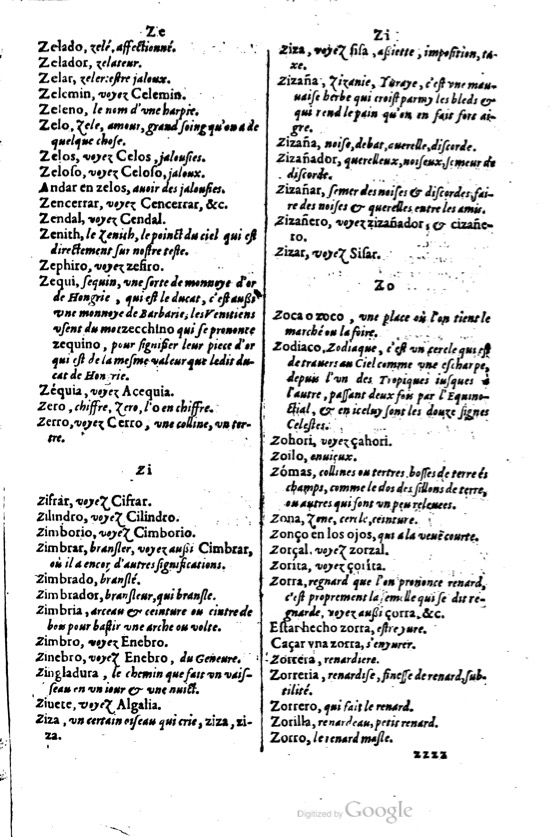 Ze
Zelado, zelé, affectionné.
Zelador, zelateur.
Zelar, zeler: estre jaloux.
Zelemin, voyez Celemin.
Zeleno, le nom d'vne harpie.
Zelo, Zele, amour, grand soing qu'on a de
quelque chose.
Zelos, voyez Celos, jalousies.
Zeloso, voyez Celoso, jaloux.
Andar en zelos, auoir des jalousies.
Zencerrar, voyez Cencerrar, &c.
Zendal, voyez Cendal.
Zenith, le Zenith, le poinct du ciel qui est
directement sur nostre teste.
Zephiro, voyez zefiro.
Zequi, sequin, vne sorte de monnoye d'or
de Hongrie, qui est le ducat, c'est aussi
vne monnoye de Barbarie; les Venitiens
vsent du mot zecchino qui se prononce
zequino, pour signifier leur piece d'or
qui est de la mesme valeur que ledit du-
cat de Hongrie.
Zéquia, voyez Acequia.
Zero, chiffre, Zero, l'o en chiffre.
Zerro, voyez Cerro, vne colline, vn ter-
tre.
Zi
Zifrar, voyez Cifrar.
Zilindro, voyez Cilindro.
Zimborio, voyez Cimborio.
Zimbrar, bransler, voyez aussi Cimbrar,
où il a encor d'autres significations.
Zimbrado, branslé.
Zimbrador, bransleur, qui bransle.
Zimbria, arceau & ceinture ou cintre de
bois pour bastir vne arche ou volte.
Zimbro, voyez Enebro.
Zinebro, voyez Enebro, du Geneure.
Zingladura, le chemin que fait vn vais-
seau en vn iour & vne nuict.
Ziuete, voyez Algalia.
Ziza, vn certain oiseau qui crie, ziza, zi-
za.
Zi
Ziza, voyez sisa, assiette, imposition, ta-
xe.
Zizaña, Zizanie, Yuraye, c'est vne mau-
uaise herbe qui croist parmy les bleds &
qui rend le pain qu'on en fait fort ai-
gre.
Zizaña, noise, debat, querelle, discorde.
Zizañador, querelleux, noiseux, semeur de
discorde.
Zizañar, semer des noises & discordes, fai-
re des noises & querelles entre les amis.
Zizañero, voyez zizañador, & cizañe-
ro.
Zizar, voyez Sisar.
Zo
Zoca o zoco, vne place où l'on tient le
marché ou la foire.
Zodiaco, Zodiaque, c'est vn cercle qui est
de trauers au Ciel comme vne escharpe,
depuis l'vn des Tropiques iusques à
l'autre, passant deux fois par l'Equino-
ctial, & en iceluy sont les douze signes
Celestes.
Zohori, voyez çahori.
Zoilo, enuieux.
Zómas, collines ou tertres, bosses de terre és
champs, comme le dos des sillons de terre,
ou autres qui sont vn peu releuees.
Zona, Zone, cercle, ceinture.
Zonço en los ojos, qui a la veuë courte.
Zorçal, voyez zorzal.
Zorita, voyez çorita.
Zorra, regnard que l'on prononce renard,
c'est proprement la femelle qui se dit re-
gnarde, voyez aussi çorra, &c.
Estar hecho zorra, estre yure.
Caçar vna zorra, s'enyurer.
Zorrera, renardiere.
Zorreria, renardise, finesse de renard, sub-
tilité.
Zorrero, qui fait le renard.
Zorilla, renardeau, petit renard.
Zorro, le renard masle.
zzzz
Digitized by Google